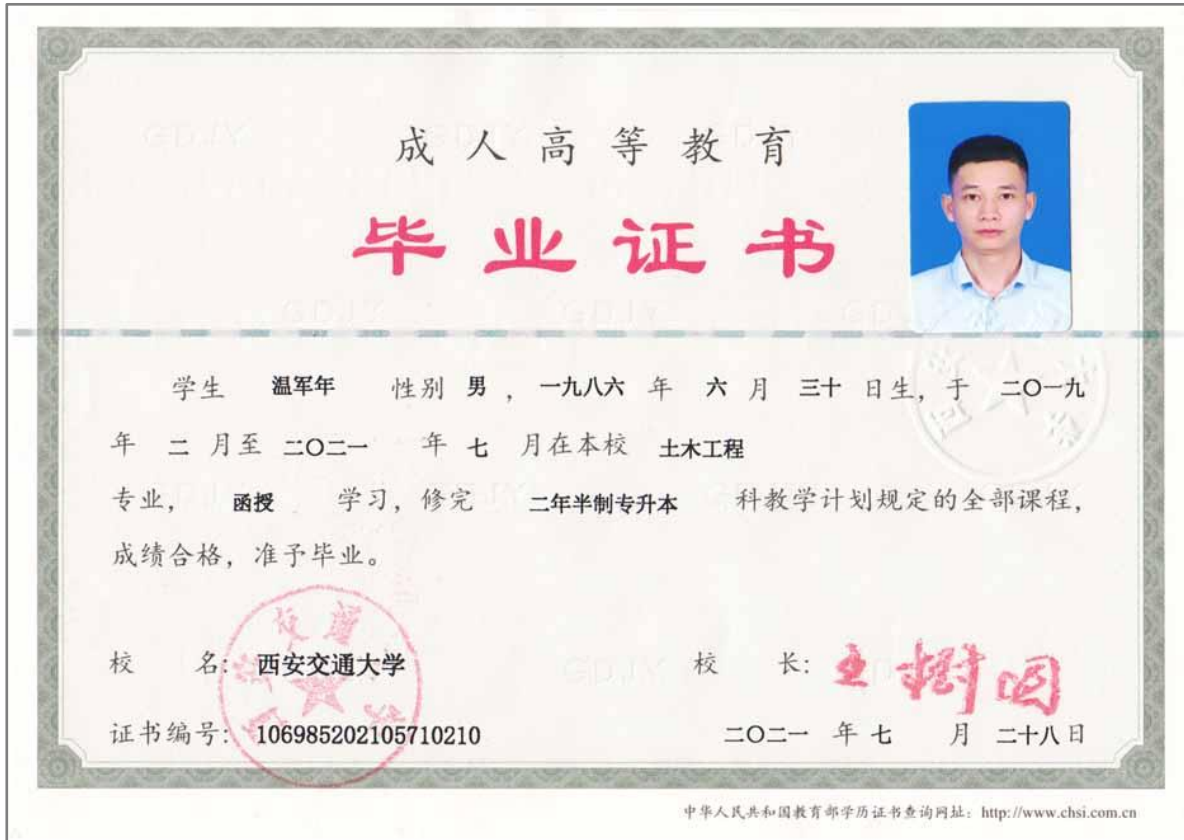 成人高等教育
毕业证书
学生 温军年 性别 男，一九八六 年 六 月 三十 日生，于 二〇一九
年 二 月至 二〇二一 年 七 月在本校 土木工程
专业，函授 学习，修完 二年半制专升本 科教学计划规定的全部课程，
成绩合格，准予毕业。
校 名：西安交通大学 校 长：王树国
证书编号：106985202105710210 二〇二一 年 七 月 二十八日
中华人民共和国教育部学历证书查询网址：http://www.chsi.com.cn
GDJY